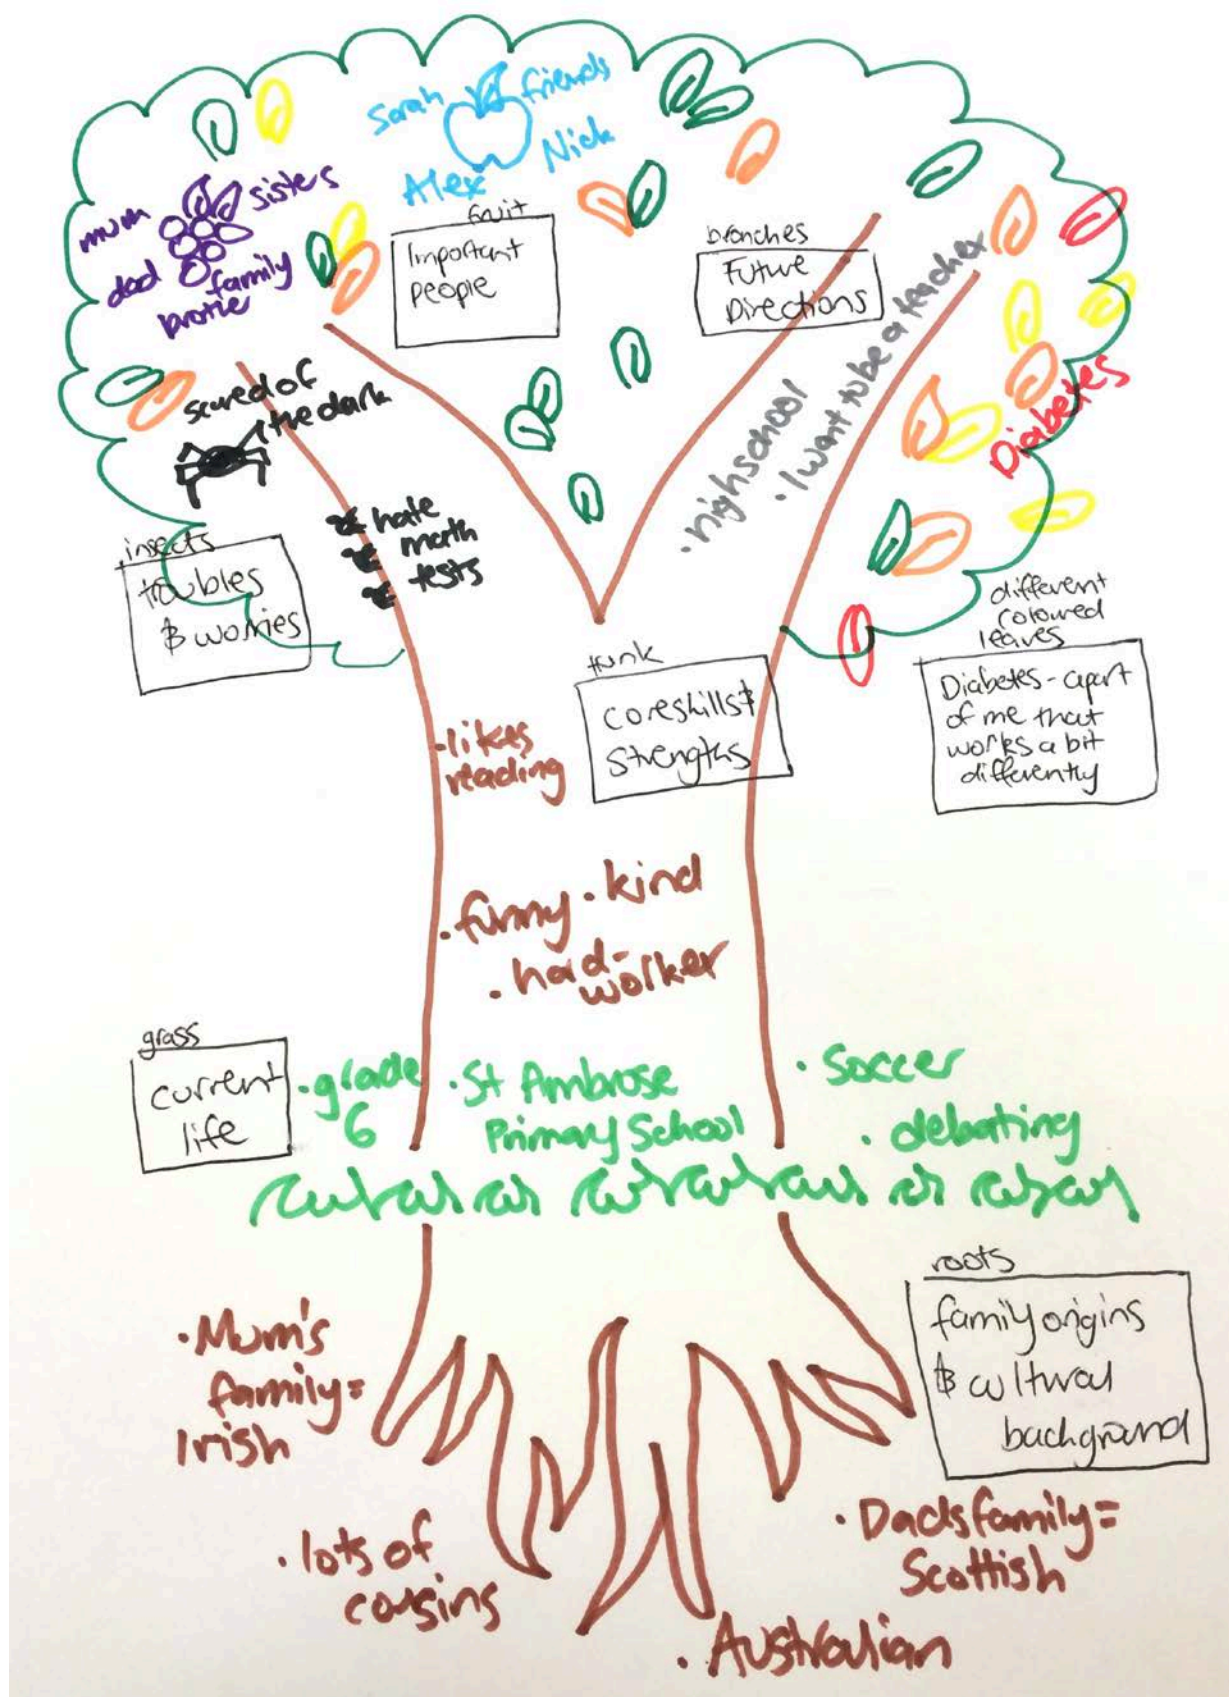 Sarah
friends
Nick
Alex
mum
sisters
dad
family
fruit
Important
people
branches
Future
Directions
scared of
the dark
hate
math
tests
insects
troubles
& worries
• highschool
• I want to be a teacher
Diabetes
different
coloured
leaves
Diabetes - apart
of me that
works a bit
differently
trunk
core skills &
strengths
• likes
reading
• funny • kind
• hard-
worker
grass
current
life
• grade
6
• St Ambrose
Primary School
• Soccer
• debating
roots
family origins
& cultural
background
• Mum's
family =
Irish
• lots of
cousins
• Dads family =
Scottish
• Australian